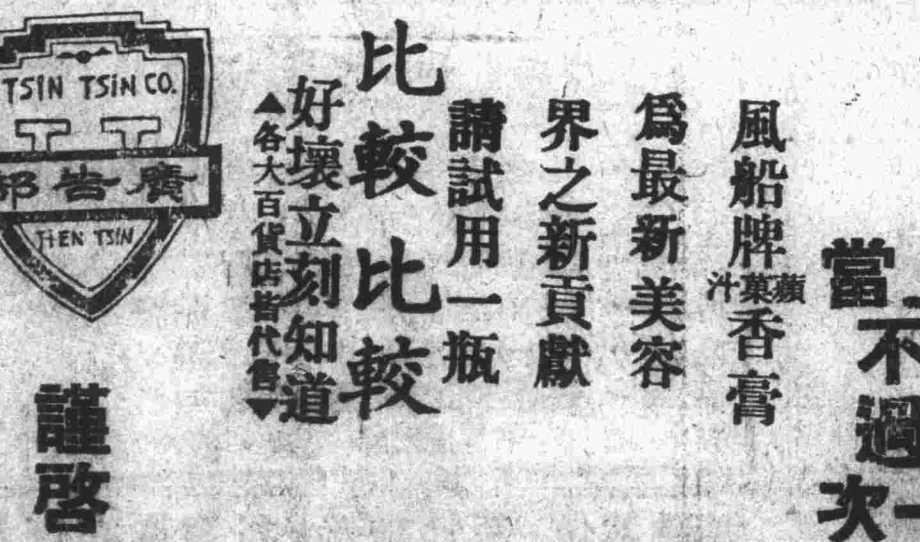 當
不過
次一
風船牌蘋菓汁香膏
爲最新美容
界之新貢獻
請試用一瓶
比較比較
好壞立刻知道
▲各大百貨店皆代售▼
TSIN TSIN CO.
廣告部
TIEN TSIN
謹啓